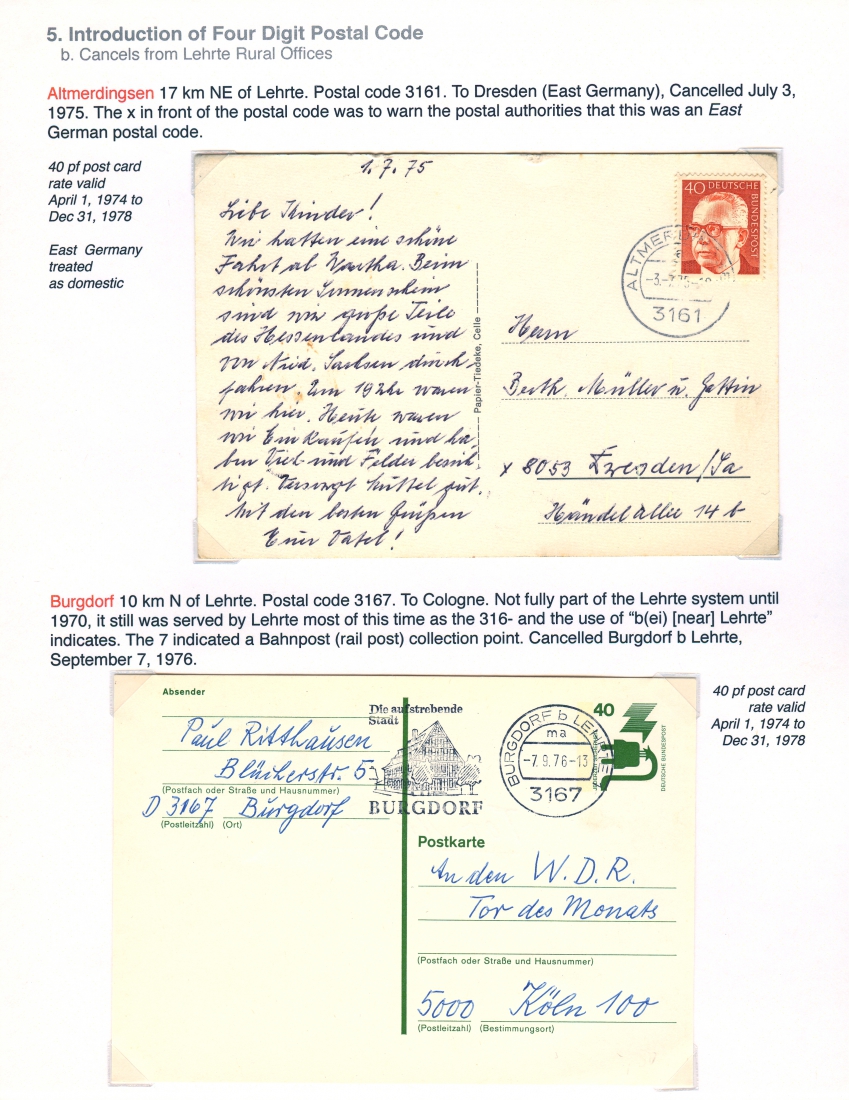 5. Introduction of Four Digit Postal Code
b. Cancels from Lehrte Rural Offices
Altmerdingsen 17 km NE of Lehrte. Postal code 3161. To Dresden (East Germany), Cancelled July 3,
1975. The x in front of the postal code was to warn the postal authorities that this was an East
German postal code.
40 pf post card
rate valid
April 1, 1974 to
Dec 31, 1978
East Germany
treated
as domestic
1.7.75
Liebe Kinder!
Wir hatten eine schöne
Fahrt ab Wartha. Beim
schönsten Sonnenschein
sind wir große Teile
des Hessenlandes und
von Nied. Sachsen durch-
fahren. Um 19 Uhr waren
wir hier. Heute waren
wir Einkaufen und ha-
ben Vieh und Felder besich-
tigt. Versorgt gut.
Mit den besten Grüßen
Euer Vater!
Papier-Tiedeke, Celle
40 DEUTSCHE BUNDESPOST
ALTMER
-3.-7.75-
3161
Herrn
Berth. Müller u. Gattin
x 8053 Dresden/Sa
Händelallee 14 b
Burgdorf 10 km N of Lehrte. Postal code 3167. To Cologne. Not fully part of the Lehrte system until
1970, it still was served by Lehrte most of this time as the 316- and the use of “b(ei) [near] Lehrte”
indicates. The 7 indicated a Bahnpost (rail post) collection point. Cancelled Burgdorf b Lehrte,
September 7, 1976.
40 pf post card
rate valid
April 1, 1974 to
Dec 31, 1978
Absender
Paul Ritthausen
Blücherstr. 5
(Postfach oder Straße und Hausnummer)
D 3167 Burgdorf
(Postleitzahl) (Ort)
Die aufstrebende
Stadt
BURGDORF
BURGDORF b LEHRTE
ma
-7.9.76-13
3167
40
DEUTSCHE BUNDESPOST
Postkarte
An den W.D.R.
Tor des Monats
(Postfach oder Straße und Hausnummer)
5000 Köln 100
(Postleitzahl) (Bestimmungsort)